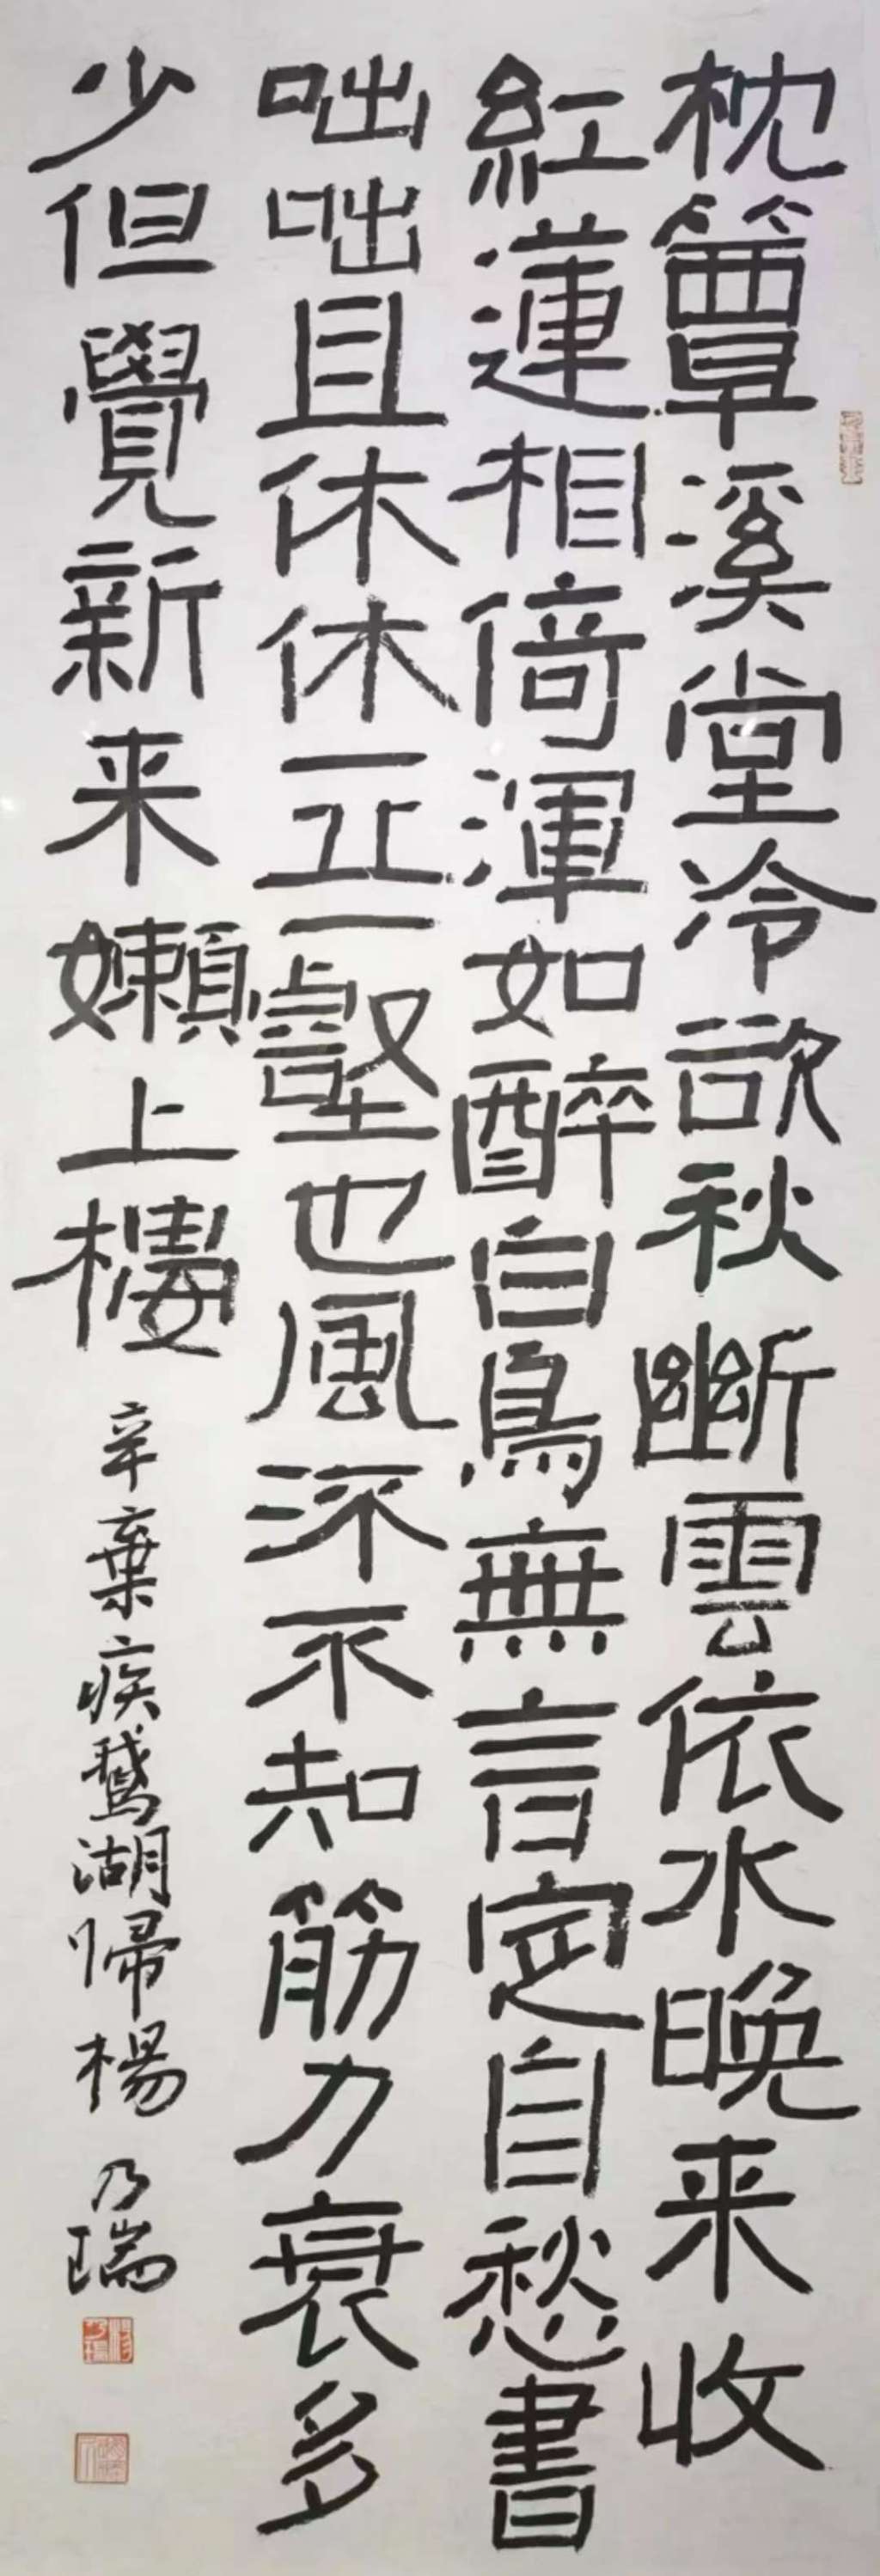 枕簟溪堂冷欲秋斷雲依水晚来收
紅蓮相倚渾如醉白鳥無言定自愁書
咄咄且休休一丘一壑也風流不知筋力衰多
少但覺新来嬾上樓 辛棄疾鵞湖帰楊乃瑞